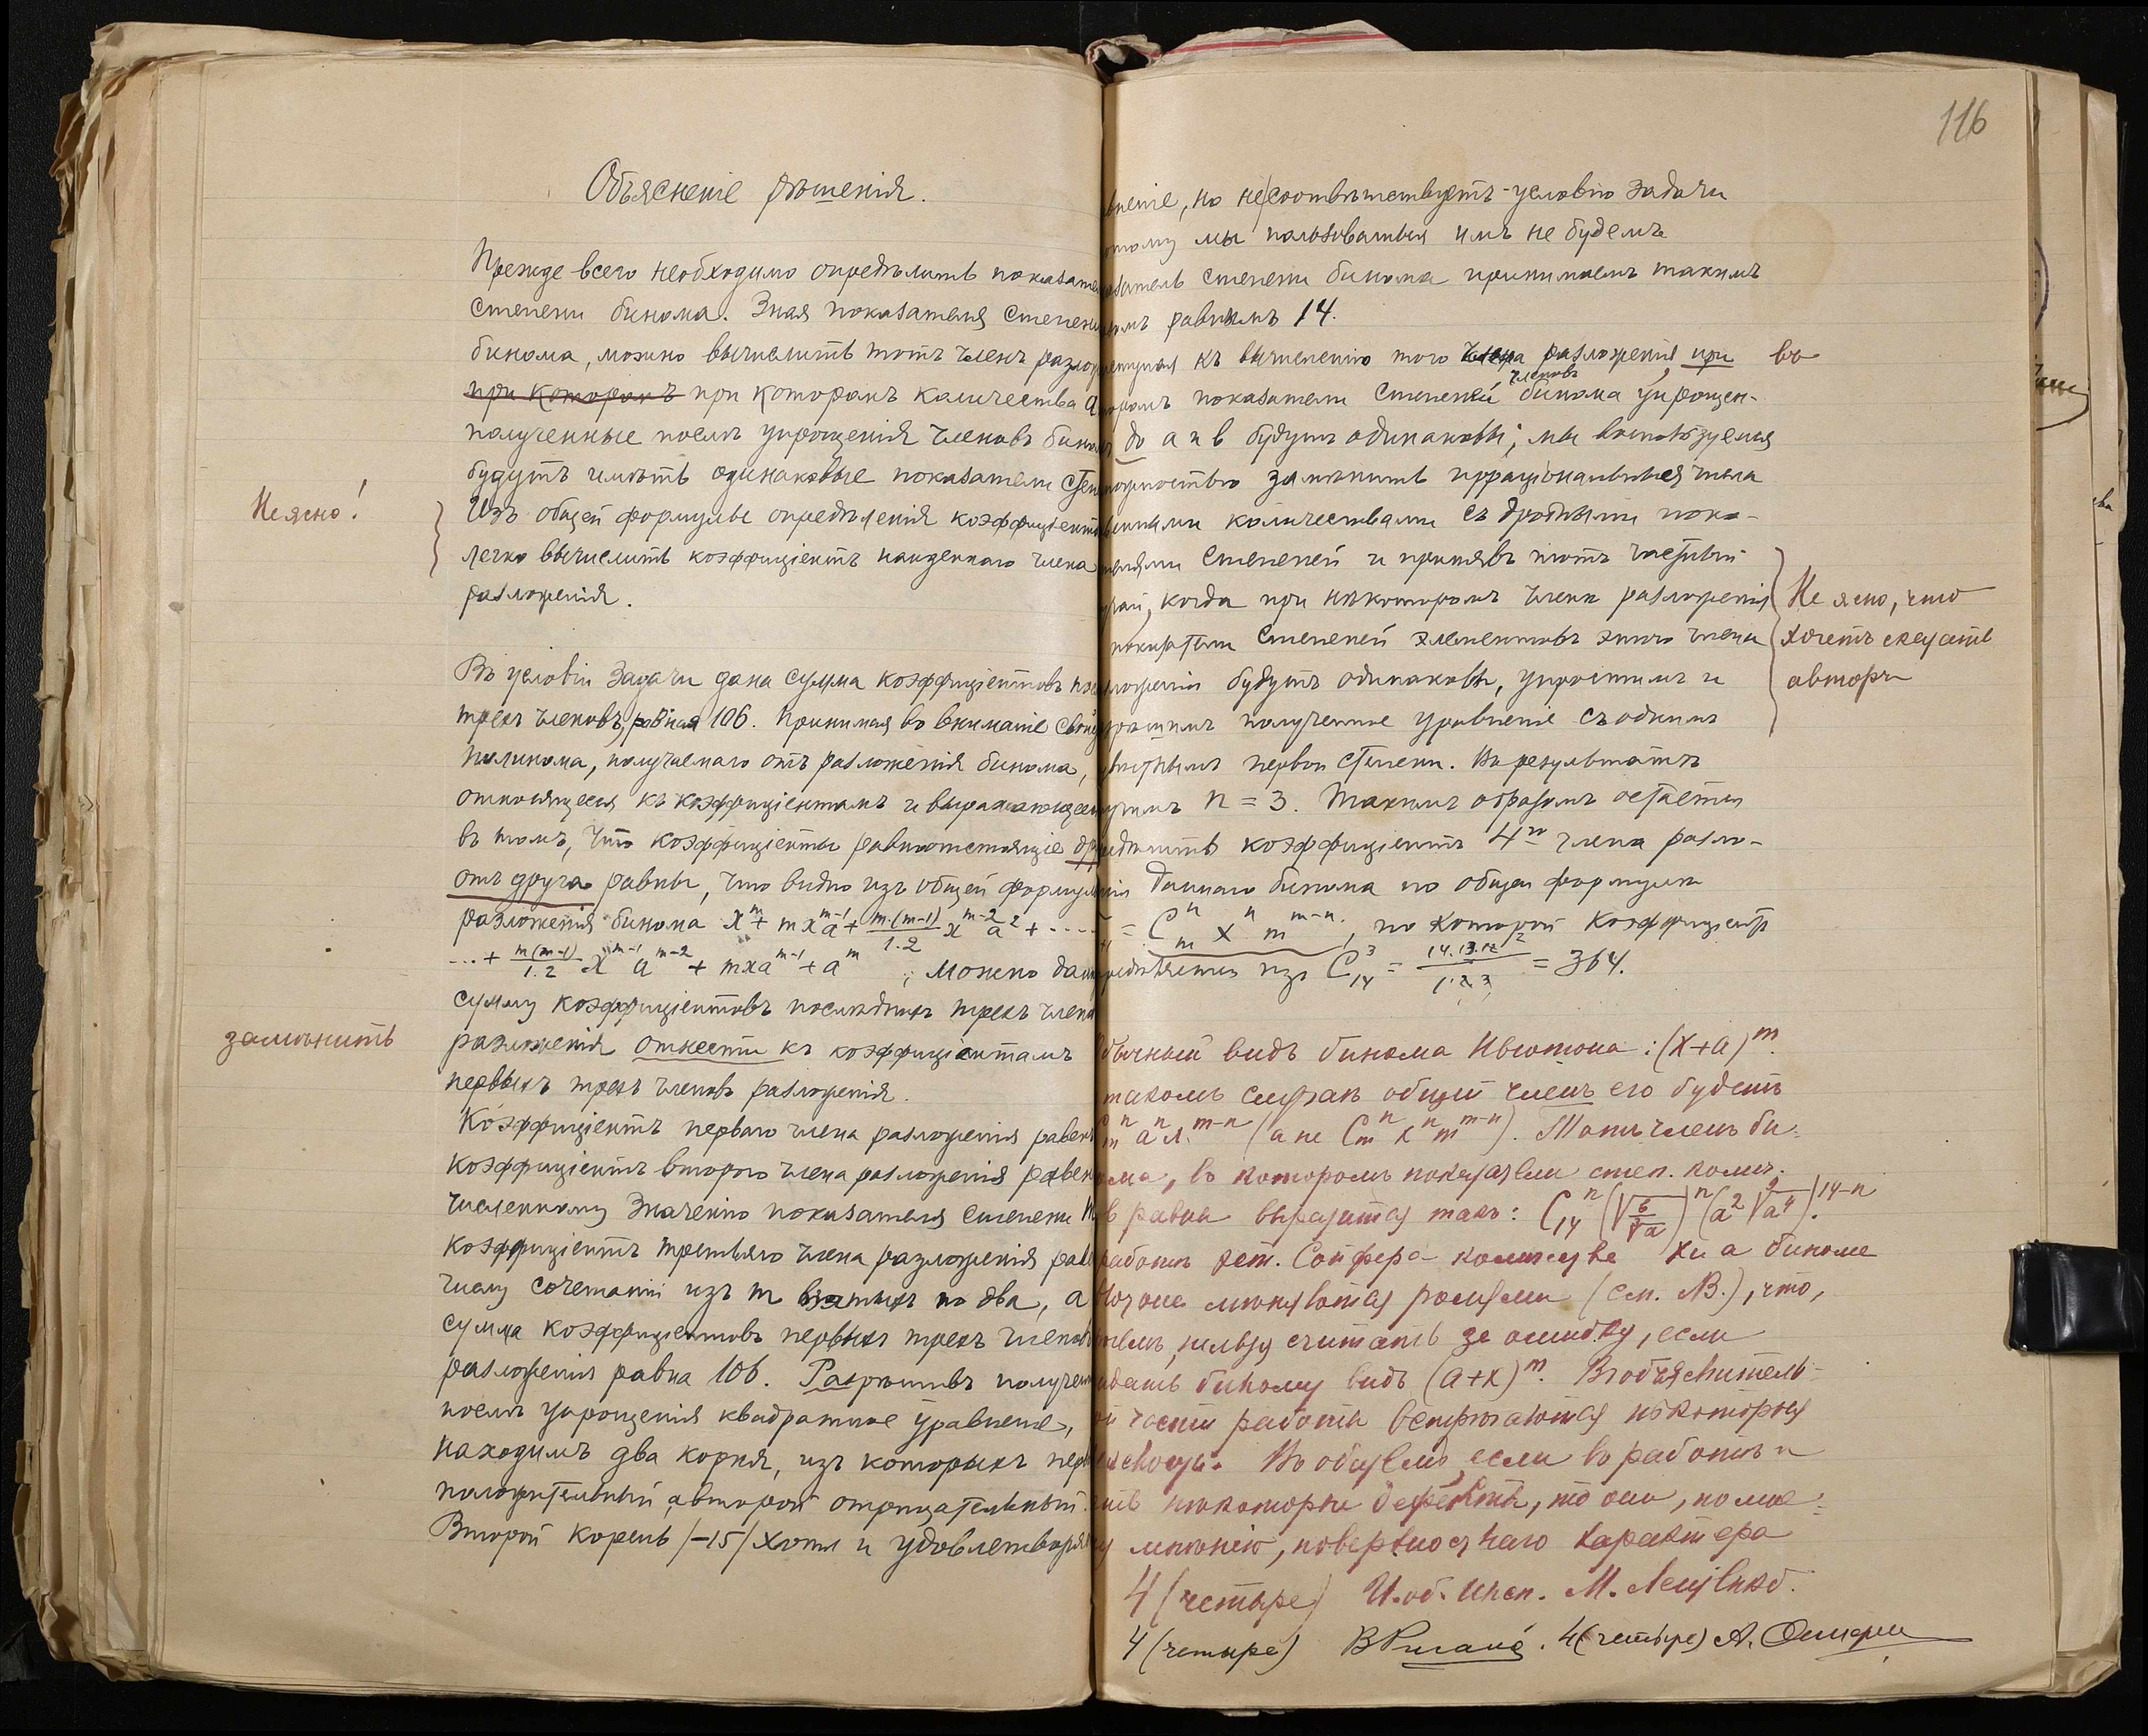 116
Объясненіе рѣшенія.
Прежде всего необходимо опредѣлить показате
степени бинома. Зная показателя степени
бинома, можно вычислить тотъ членъ разло
при которомъ при которомъ количества а
полученные послѣ упрощенія членовъ бинома
будутъ имѣть одинаковые показатели степ
Не ясно!
Изъ общей формулы опредѣленія коэффиціента
легко вычислить коэффиціентъ найденнаго члена
разложенія.
Въ условіи задачи дана сумма коэффиціентовъ
трехъ членовъ, равная 106. Принимая во вниманіе свой
полинома, получаемаго отъ разложенія бинома,
относящееся къ коэффиціентамъ и выражающееся
въ томъ, что коэффиціенты равноотстоящіе др
отъ друга равны, что видно изъ общей формулы
разложенія бинома x^m + mx^{m-1}a + \frac{m(m-1)}{1.2} x^{m-2} a^2 + ....
...+ \frac{m(m-1)}{1.2} x^{m-1} a^{m-2} + mxa^{m-1} + a^m ; можно дан
сумму коэффиціентовъ послѣднихъ трехъ члено
замѣнить
разложенія отнести къ коэффиціентамъ
первыхъ трехъ членовъ разложенія.
Коэффиціентъ перваго члена разложенія равенъ
коэффиціентъ второго члена разложенія равенъ
численному значенію показателя степени
коэффиціентъ третьяго члена разложенія рав
числу сочетаній изъ m взятыхъ по два, а
сумма коэффиціентовъ первыхъ трехъ членовъ
разложенія равна 106. Разрѣшивъ получен
послѣ упрощенія квадратное уравненіе,
находимъ два корня, изъ которыхъ перв
положительный, а второй отрицательный.
Второй корень /-15/ хотя и удовлетворяе
вненіе, но не соотвѣтствуетъ условію задачи
этому мы пользоваться имъ не будемъ
азатель степени бинома принимаемъ такимъ
омъ равнымъ 14.
ступая къ вычисленію того члена разложенія, при во
торомъ показатели степеней членовъ бинома упрощен-
до а и в будутъ одинаковы; мы воспользуемся
можностью замѣнить ирраціональныя числа
венными количествами съ дробными пока-
телями степеней и принявъ тотъ частный
чай, когда при нѣкоторомъ членѣ разложенія
показатели степеней элементовъ этого члена
Не ясно, что
хочетъ сказать
авторъ
ложенія будутъ одинаковы, упростимъ и
рѣшимъ полученное уравненіе съ однимъ
вѣстнымъ первой степени. Въ результатѣ
учимъ n = 3. Такимъ образомъ остается
редѣлить коэффиціентъ 4^{го} члена разло-
нія даннаго бинома по общей формулѣ
= C_m^n x^n m^{m-n}, по которой коэффиціентъ
редѣляется изъ C_{14}^3 = \frac{14.13.12}{1.2.3} = 364.
Обычный видъ бинома Ньютона: (x+a)^m.
такомъ случаѣ общій членъ его будетъ
C_m^n a^n x^{m-n} (а не C_m^n x^n m^{m-n}). Тотъ членъ би-
нома, въ которомъ показатели степ. колич.
в равны выразится такъ: C_{14}^n
работѣ эст. Сойфера количества x и а биноме
мѣняются ролями (см. NB.), что,
нельзя считать за ошибку, если
придать биному видъ (a+x)^m. Въ объяснитель-
ой части работы встрѣчаются нѣкоторыя
неясности. Въ общемъ, если въ работѣ и
есть нѣкоторые дефекты, то они, по мое-
му мнѣнію, поверхностнаго характера
4 (четыре) И. об. инсп.
4 (четыре) 4 (четыре) А.